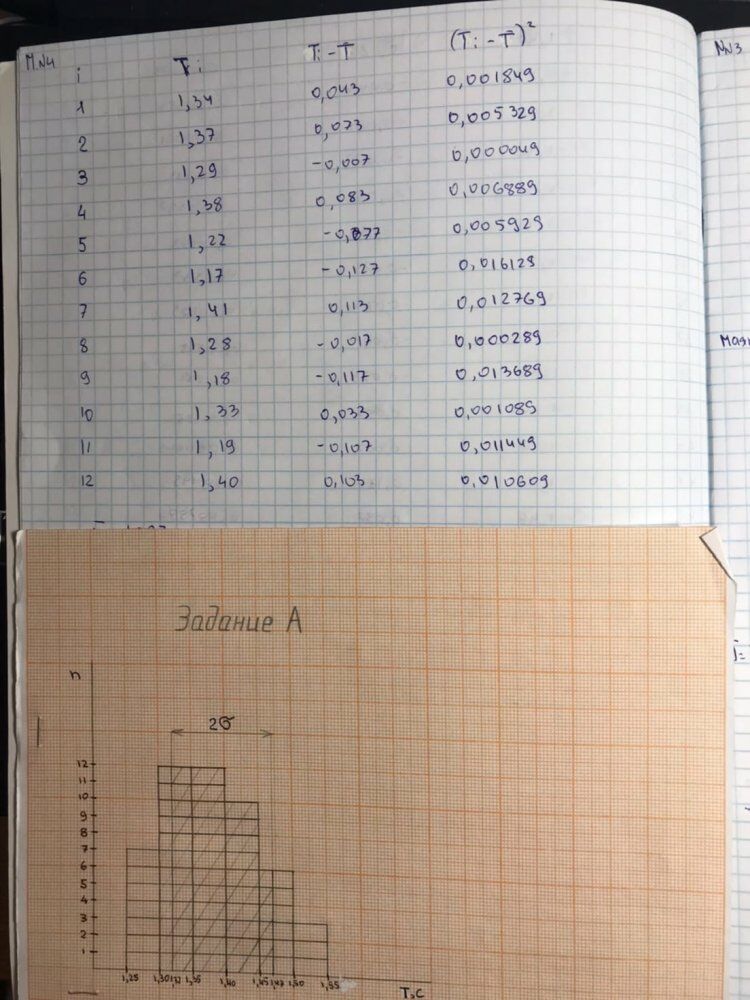 М.№4
№3
i Ti Ti - T̅ (Ti - T̅)²
1 1,34 0,043 0,001849
2 1,37 0,073 0,005329
3 1,29 -0,007 0,000049
4 1,38 0,083 0,006889
5 1,22 -0,077 0,005929
6 1,17 -0,127 0,016129
7 1,41 0,113 0,012769
8 1,28 -0,017 0,000289
9 1,18 -0,117 0,013689
10 1,33 0,033 0,001089
11 1,19 -0,107 0,011449
12 1,40 0,103 0,010609
Задание А
n
2σ
12
11
10
9
8
7
6
5
4
3
2
1
1,25 1,30 1,32 1,35 1,40 1,45 1,47 1,50 1,55
T,с